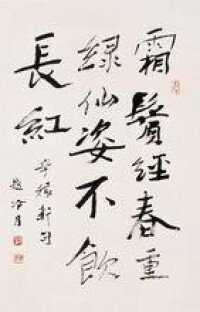 霜鬢經春重
綠仙姿不飲
長紅
辛稼軒句
趙冷月